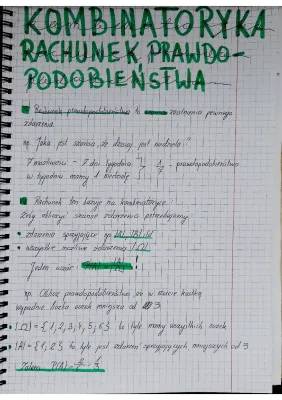 KOMBINATORYKA
RACHUNEK PRAWDO-
PODOBIEŃSTWA
Rachunek prawdopodobieństwa to szansa zdarzenia pewnego
zdarzenia.
np. Jaka jest szansa, że dzisiaj jest niedziela?
7 możliwości - 7 dni tygodnia } 1/7 - prawdopodobieństwo
w tygodniu mamy 1 niedzielę
Rachunek ten bazuje na kombinatoryce.
Żeby obliczyć szansę zdarzenia potrzebujemy:
• zdarzenia sprzyjające np. |A|, |B|
• wszystkie możliwe zdarzenia |Ω|
Jeden wzór: P(A) = |A|/|Ω| !
np. Oblicz prawdopodobieństwo, że w rzucie kostką
wypadnie liczba oczek mniejsza od 3
• |Ω| = {1,2,3,4,5,6} to tyle mamy wszystkich oczek
• |A| = {1,2} to tyle jest zdarzeń sprzyjających, mniejszych od 3
Zatem P(A) =